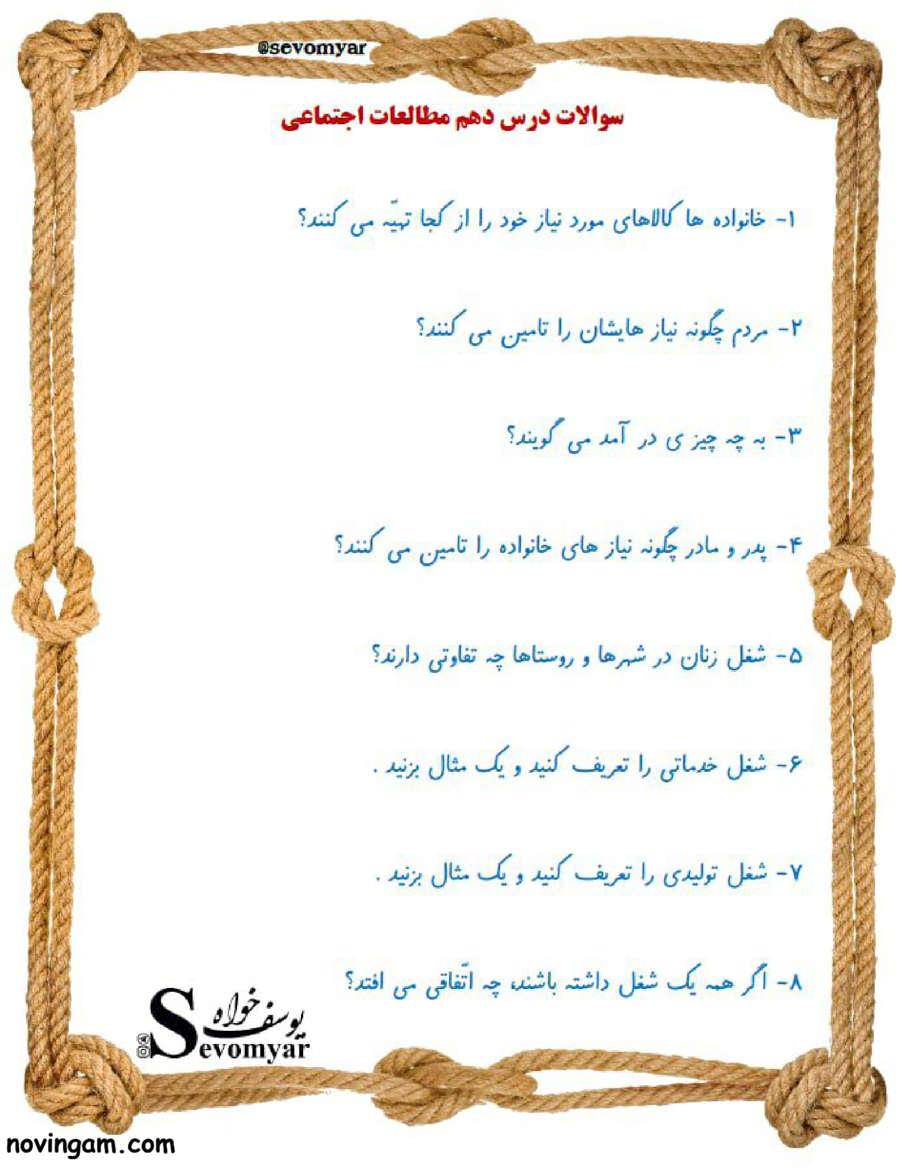 @sevomyar
سوالات درس دهم مطالعات اجتماعی
۱- خانواده ها کالاهای مورد نیاز خود را از کجا تهیّه می کنند؟
۲- مردم چگونه نیاز هایشان را تامین می کنند؟
۳- به چه چیز ی در آمد می گویند؟
۴- پدر و مادر چگونه نیاز های خانواده را تامین می کنند؟
۵- شغل زنان در شهرها و روستاها چه تفاوتی دارند؟
۶- شغل خدماتی را تعریف کنید و یک مثال بزنید .
۷- شغل تولیدی را تعریف کنید و یک مثال بزنید .
۸- اگر همه یک شغل داشته باشند، چه اتّفاقی می افتد؟
یوسف خواه
Sevomyar
novingam.com